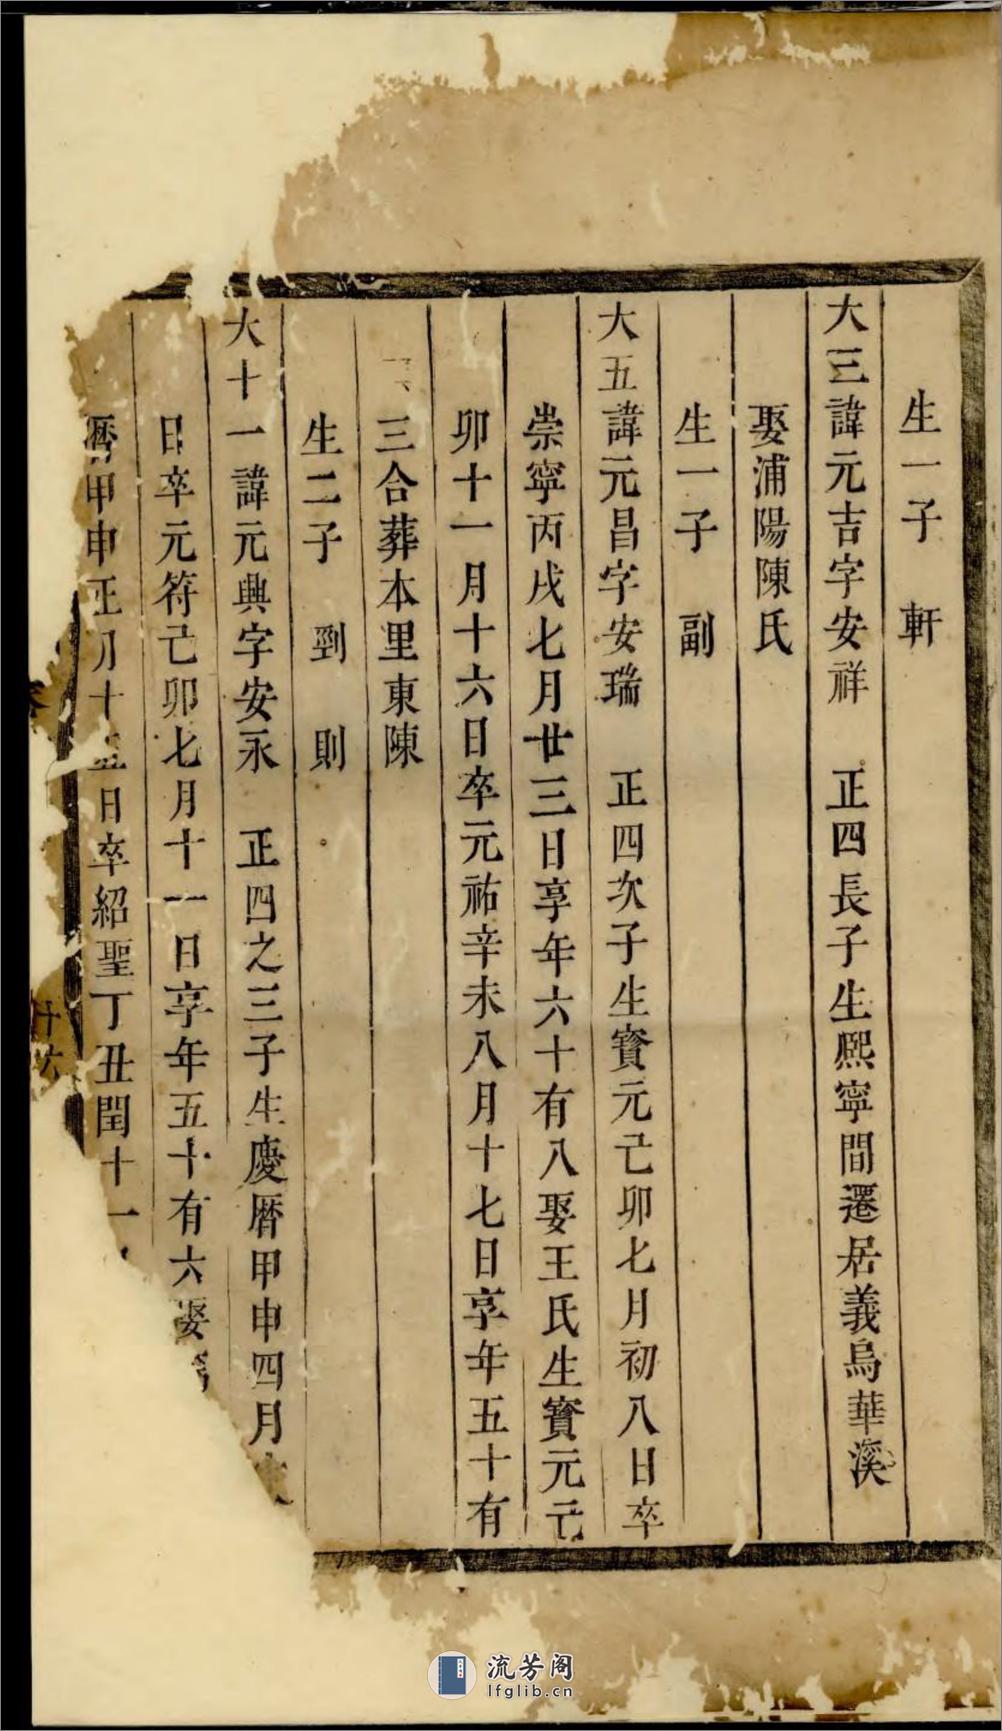 生一子　軒
大三諱元吉字安祥　正四長子生熈寧間遷居義烏華溪
娶浦陽陳氏
生一子　副
大五諱元昌字安瑞　正四次子生寳元己卯七月初八日卒
崇寧丙戌七月廿三日享年六十有八娶王氏生寳元己
卯十一月十六日卒元祐辛未八月十七日享年五十有
三合葬本里東陳
生二子　剄　則
大十一諱元興字安永　正四之三子生慶曆甲申四月
日卒元符己卯七月十一日享年五十有六娶
曆甲申正月十五日卒紹聖丁丑閏十一
流芳阁
lfglib.cn